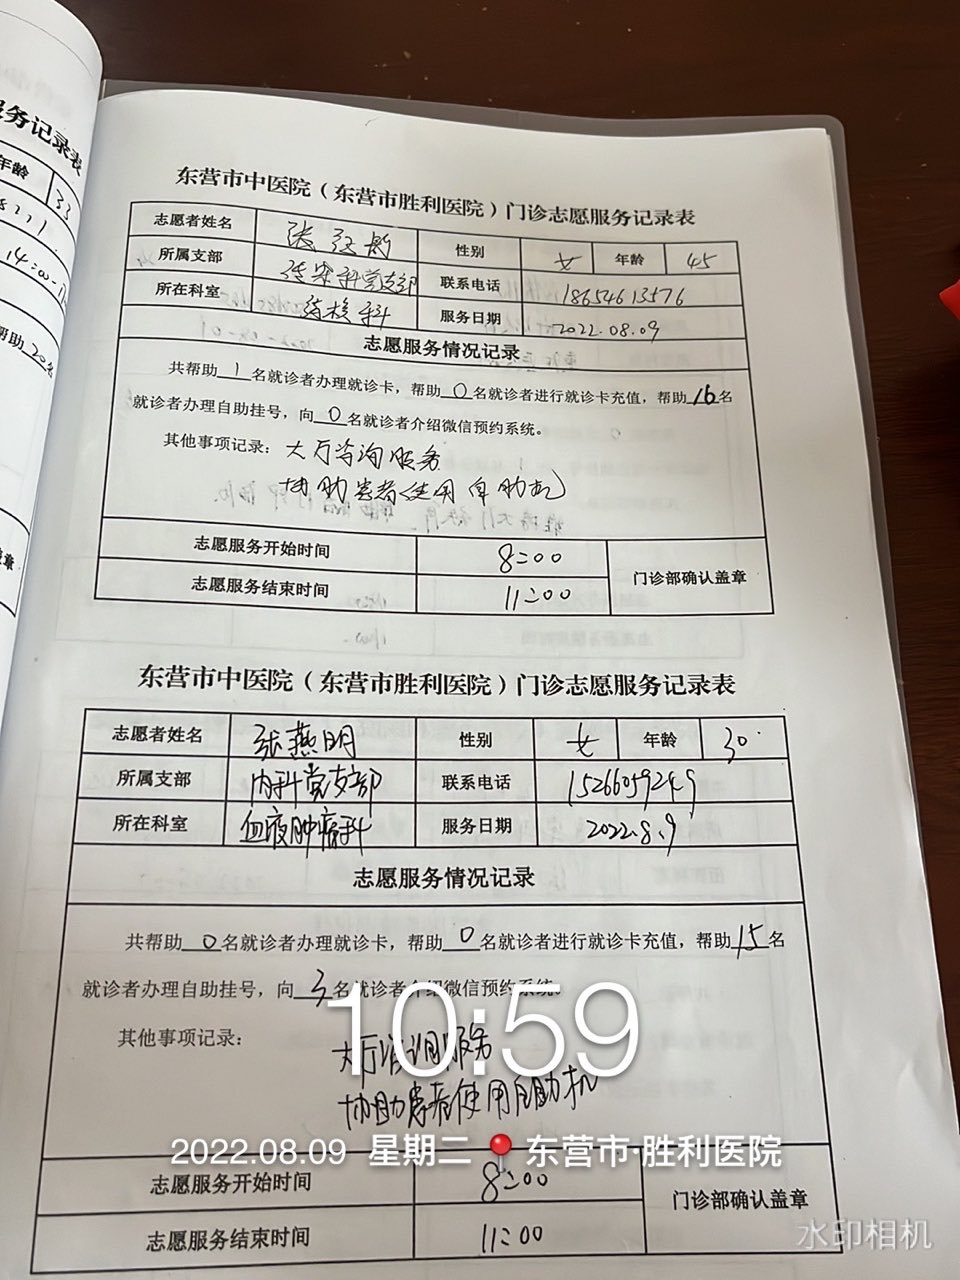 务记录表
年龄 33
14:00
帮助 20 名
盖章
东营市中医院（东营市胜利医院）门诊志愿服务记录表
志愿者姓名 张 性别 女 年龄 45
所属支部 党支部 联系电话 18654613576
所在科室 科 服务日期 2022.08.09
志愿服务情况记录
共帮助 1 名就诊者办理就诊卡，帮助 0 名就诊者进行就诊卡充值，帮助 16 名
就诊者办理自助挂号，向 0 名就诊者介绍微信预约系统。
其他事项记录：大厅咨询服务
协助患者使用自助机
志愿服务开始时间 8:00
门诊部确认盖章
志愿服务结束时间 11:00
东营市中医院（东营市胜利医院）门诊志愿服务记录表
志愿者姓名 张燕明 性别 女 年龄 30
所属支部 内科党支部 联系电话 15266059249
所在科室 血液肿瘤科 服务日期 2022.8.9
志愿服务情况记录
共帮助 0 名就诊者办理就诊卡，帮助 0 名就诊者进行就诊卡充值，帮助 15 名
就诊者办理自助挂号，向 3 名就诊者介绍微信预约系统。
10:59
其他事项记录：大厅咨询服务
协助患者使用自助机
2022.08.09 星期二 东营市·胜利医院
志愿服务开始时间 8:00
门诊部确认盖章
志愿服务结束时间 11:00
水印相机